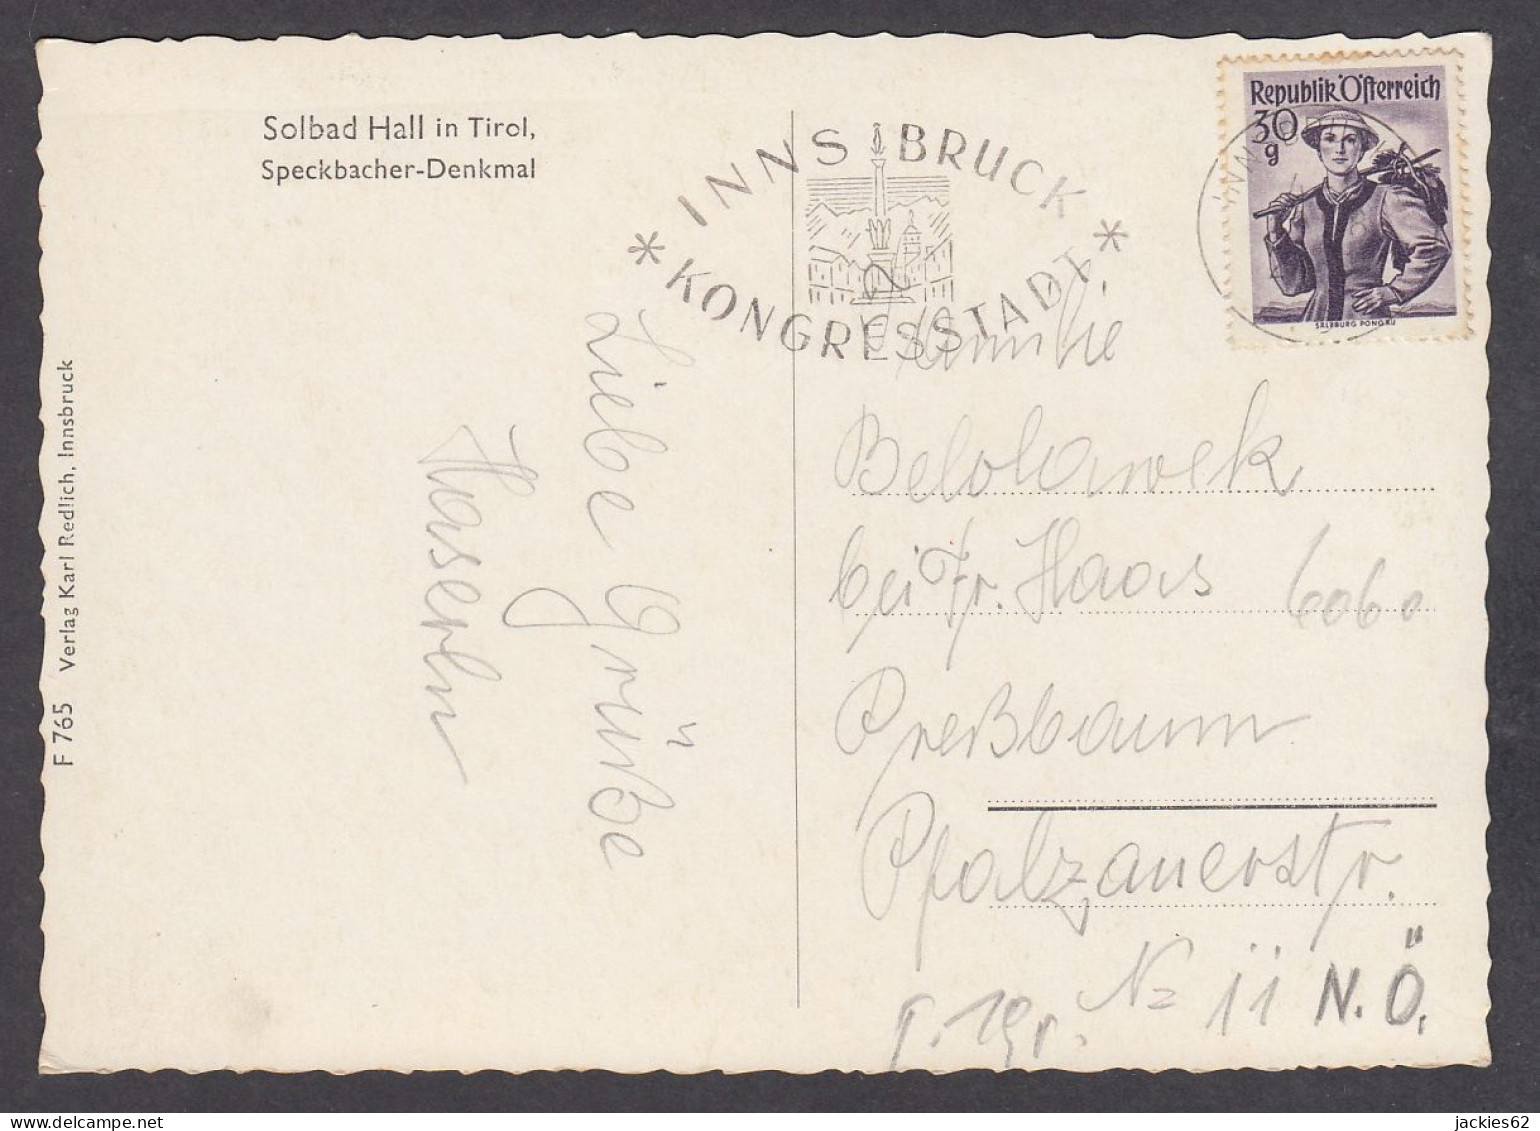 Solbad Hall in Tirol,
Speckbacher-Denkmal
F 765 Verlag Karl Redlich, Innsbruck
Liebe Grüße
INNSBRUCK
* KONGRESSTADT *
Republik Österreich
30
g
SALZBURG PONGAU
Familie
Belohlawek
bei Fr. Haas 6060
Preßbaum
Pfalzauerstr.
No 11 N.Ö.
jackies62